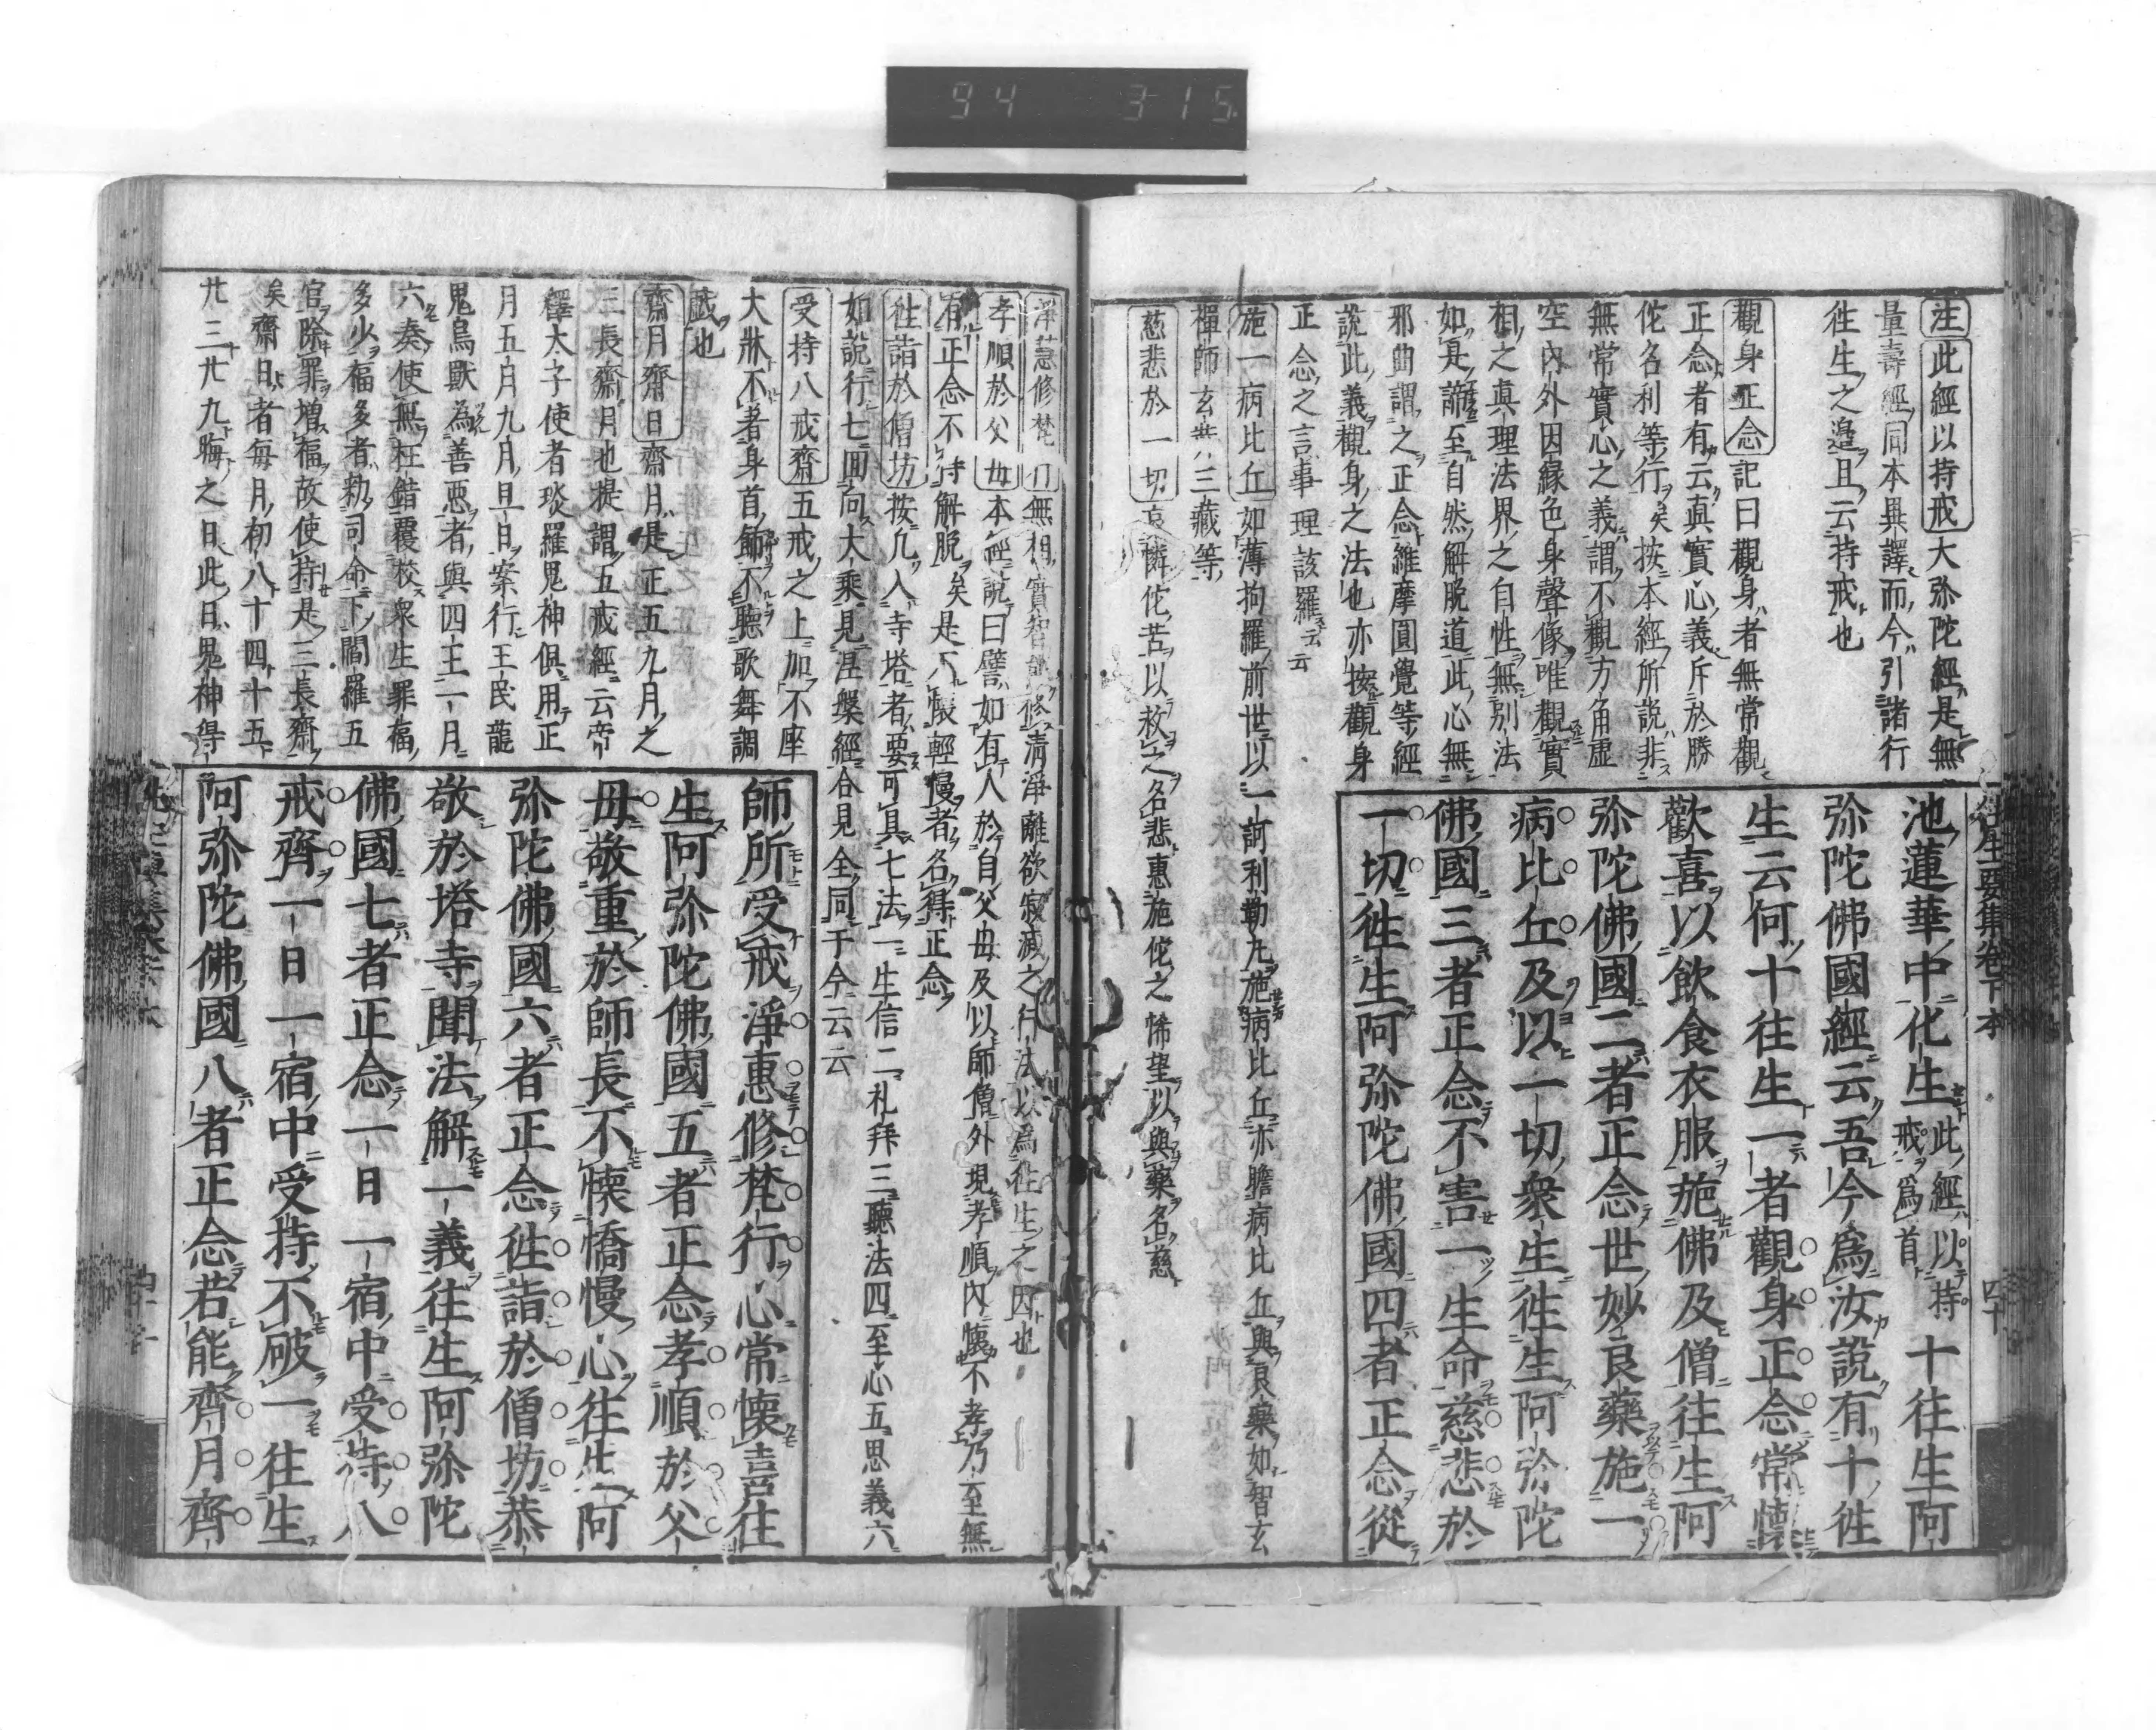 94 315
往生要集卷下本
四十
注此經以持戒大弥陀經是無
量壽經同本異譯而今引諸行
徃生之邉且云持戒也
觀身正念記曰觀身者無常觀
正念者有云真實心義斥於勝
佗名利等行矣按本經所説非
無常實心之義謂不觀方角虛
空內外因緣色身聲像唯觀實
相之真理法界之自性無別法
如是諦至自然解脫道此心無
邪曲謂之正念維摩圓覺等經
說此義觀身之法也亦按觀身
正念之言事理該羅云云
施一病比丘如薄拘羅前世以一訶利勒九施病比丘亦膽病比丘與良藥如智玄
禪師玄奘三藏等
慈悲於一切哀憐佗苦以救之名悲惠施佗之悕望以與藥名慈
池蓮華中化生此經以持戒爲首十往生阿
弥陀佛國經云吾今爲汝說有十徃
生云何十往生一者觀身正念常懷
歡喜以飲食衣服施佛及僧往生阿
弥陀佛國二者正念世妙良藥施一
病比丘及以一切衆生徃生阿弥陀
佛國三者正念不害一生命慈悲於
一切徃生阿弥陀佛國四者正念從
淨慧修梵行無相實智修清淨離欲寂滅之行法以爲徃生之因也
孝順於父母本經說曰譬如有人於自父母及以師僧外現孝順內懷不孝乃至無
有正念不得解脫矣是不懷輕慢者名得正念
徃詣於僧坊按凢入寺塔者要可具七法一生信二礼拜三聽法四至心五思義六
如說行七囬向大乘見涅槃經合見全同于今云云
受持八戒齋五戒之上加不座
大牀不著身首飾不聽歌舞調
戲也
齋月齋日齋月是正五九月之
三長齋月也提謂五戒經云帝
釋太子使者琰羅鬼神俱用正
月五月九月旦日案行王民龍
鬼鳥獸為善悪者與四王一月
六奏使無枉錯覆校衆生罪福
多少福多者勑司命下閻羅五
官除罪增福故使持是三長齋
矣齋日者每月初八十四十五
廿三廿九晦之日此日鬼神得
師所受戒淨惠修梵行心常懷喜往
生阿弥陀佛國五者正念孝順於父
母敬重於師長不懷憍慢心往生阿
弥陀佛國六者正念徃詣於僧坊恭
敬於塔寺聞法解一義往生阿弥陀
佛國七者正念一日一宿中受持八
戒齊一日一宿中受持不破一往生
阿弥陀佛國八者正念若能齊月齊